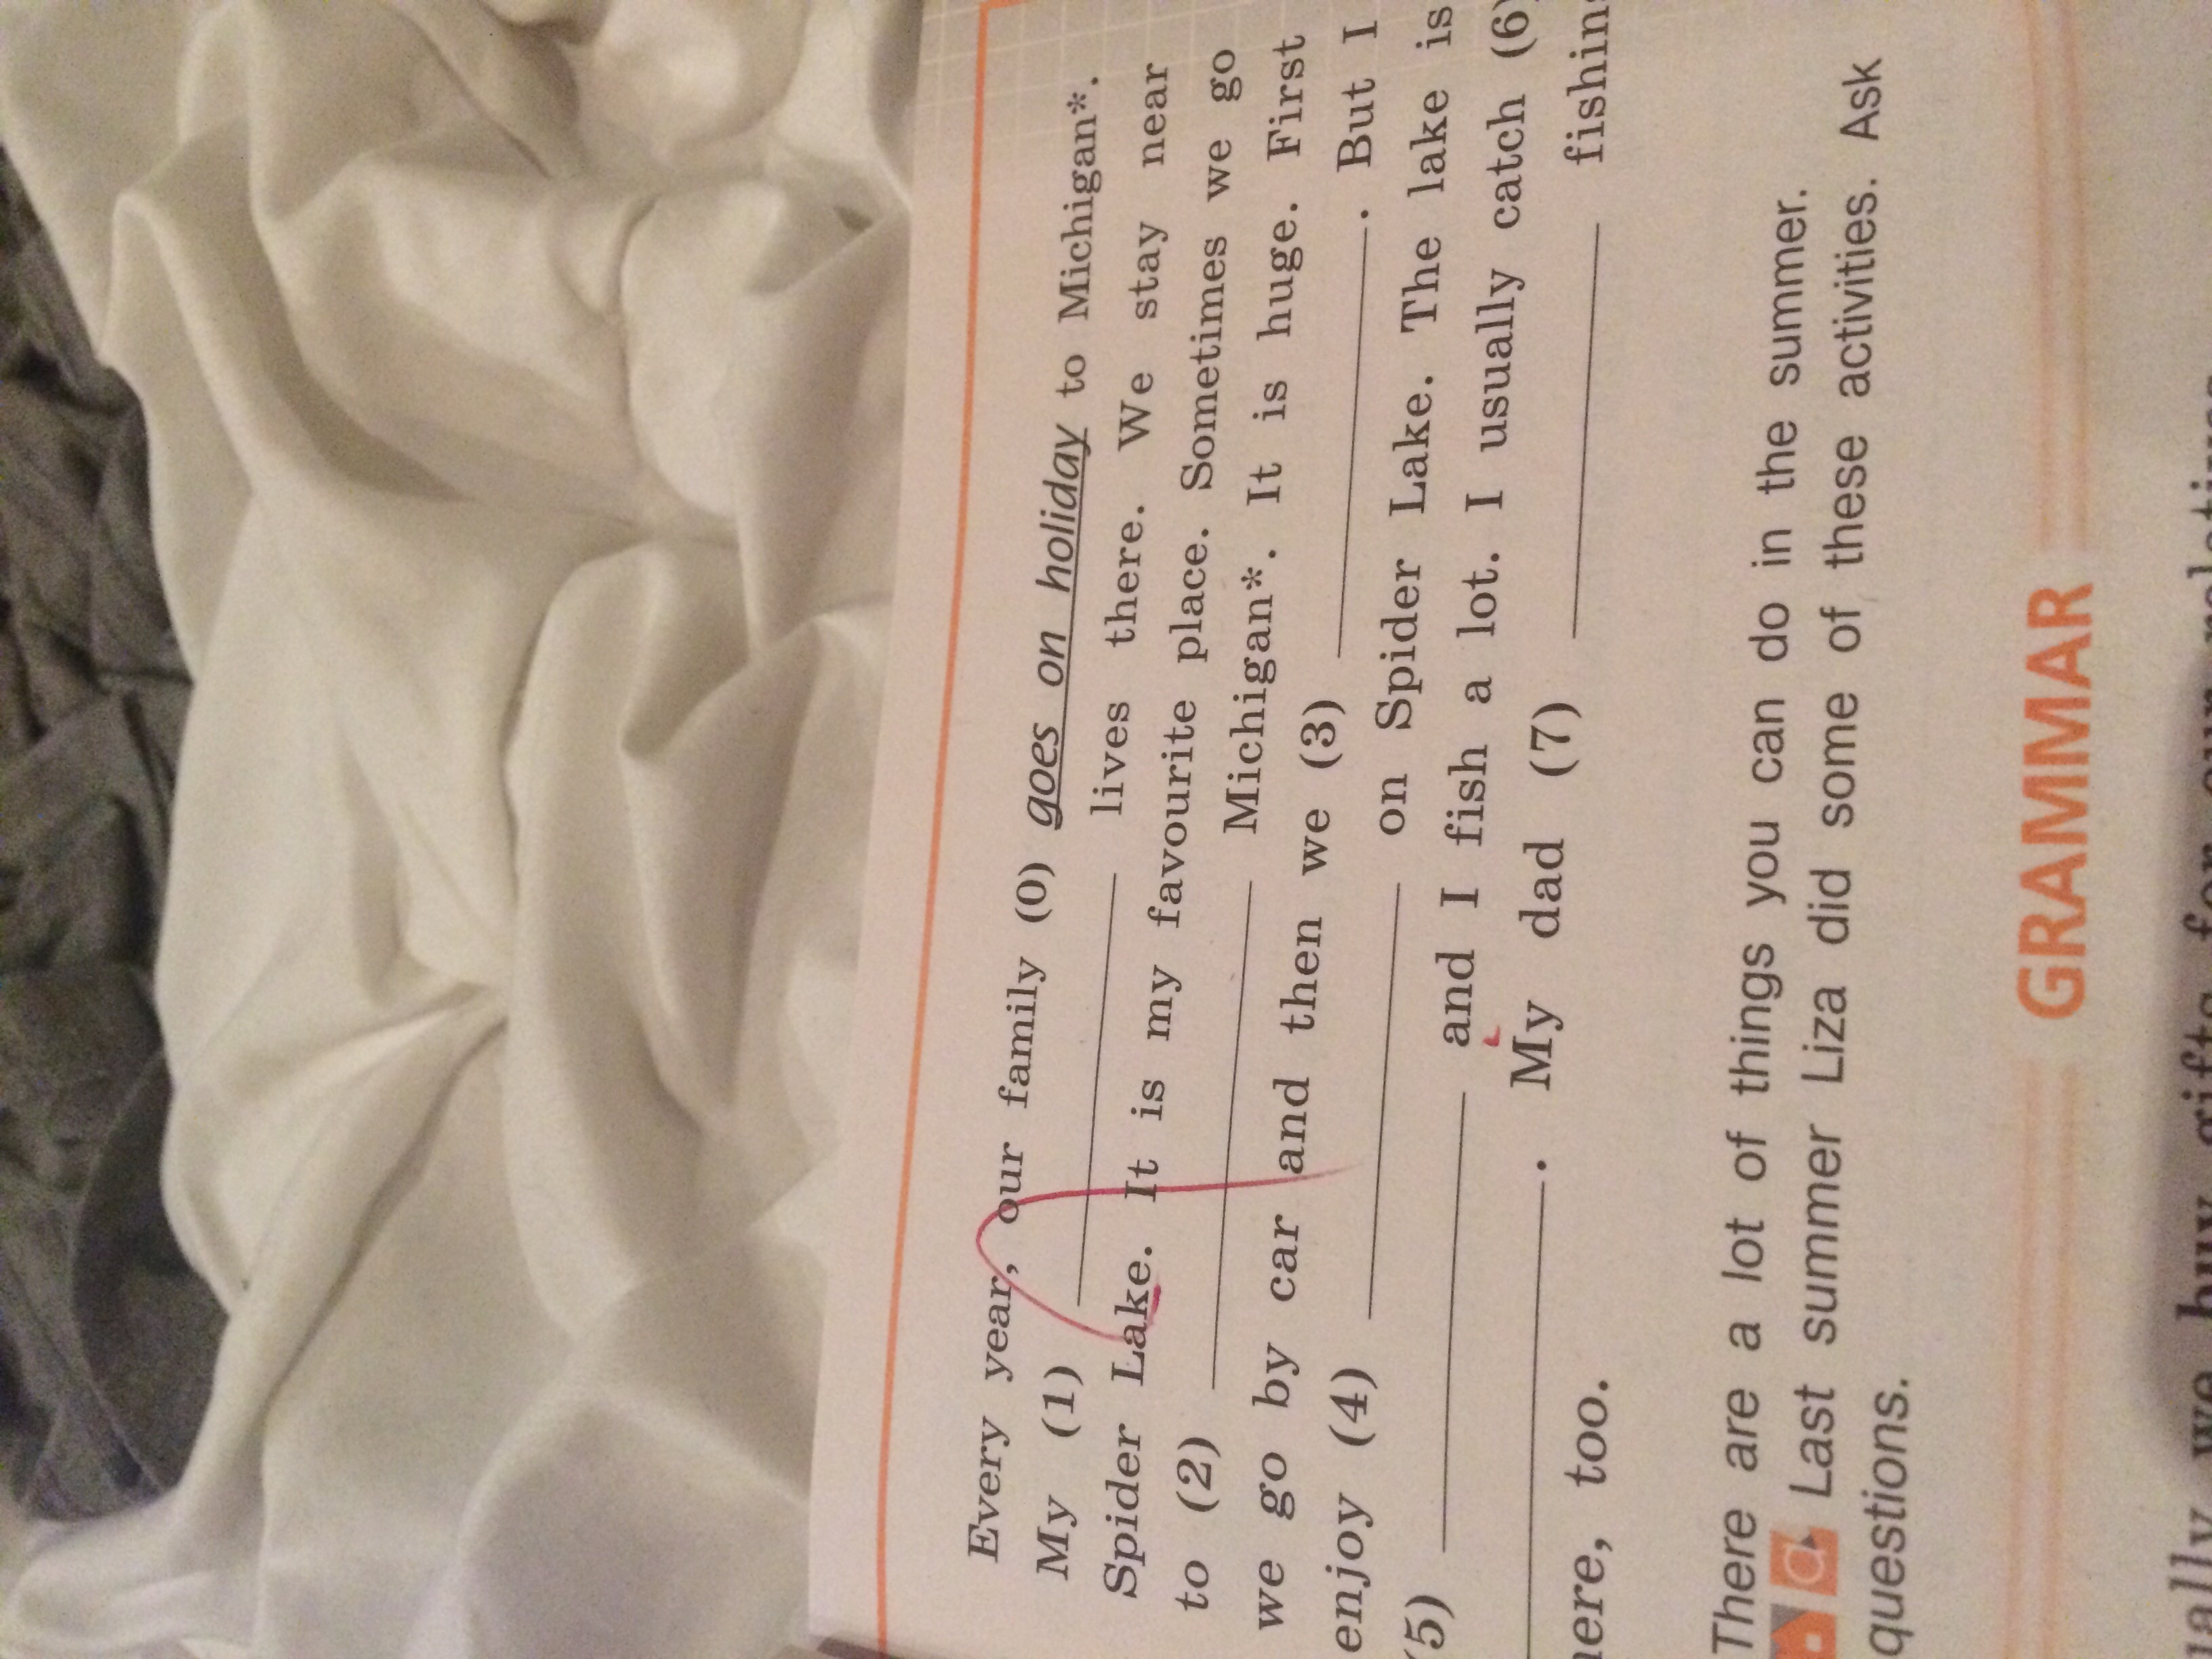 Every year, our family (0) goes on holiday to Michigan*.
My (1) ______ lives there. We stay near
Spider Lake. It is my favourite place. Sometimes we go
to (2) ______ Michigan*. It is huge. First
we go by car and then we (3) ______. But I
enjoy (4) ______ on Spider Lake. The lake is
(5) ______ and I fish a lot. I usually catch (6)
______. My dad (7) ______ fishin
here, too.
There are a lot of things you can do in the summer.
a Last summer Liza did some of these activities. Ask
questions.
GRAMMAR
ually we buy gifts for our relatives